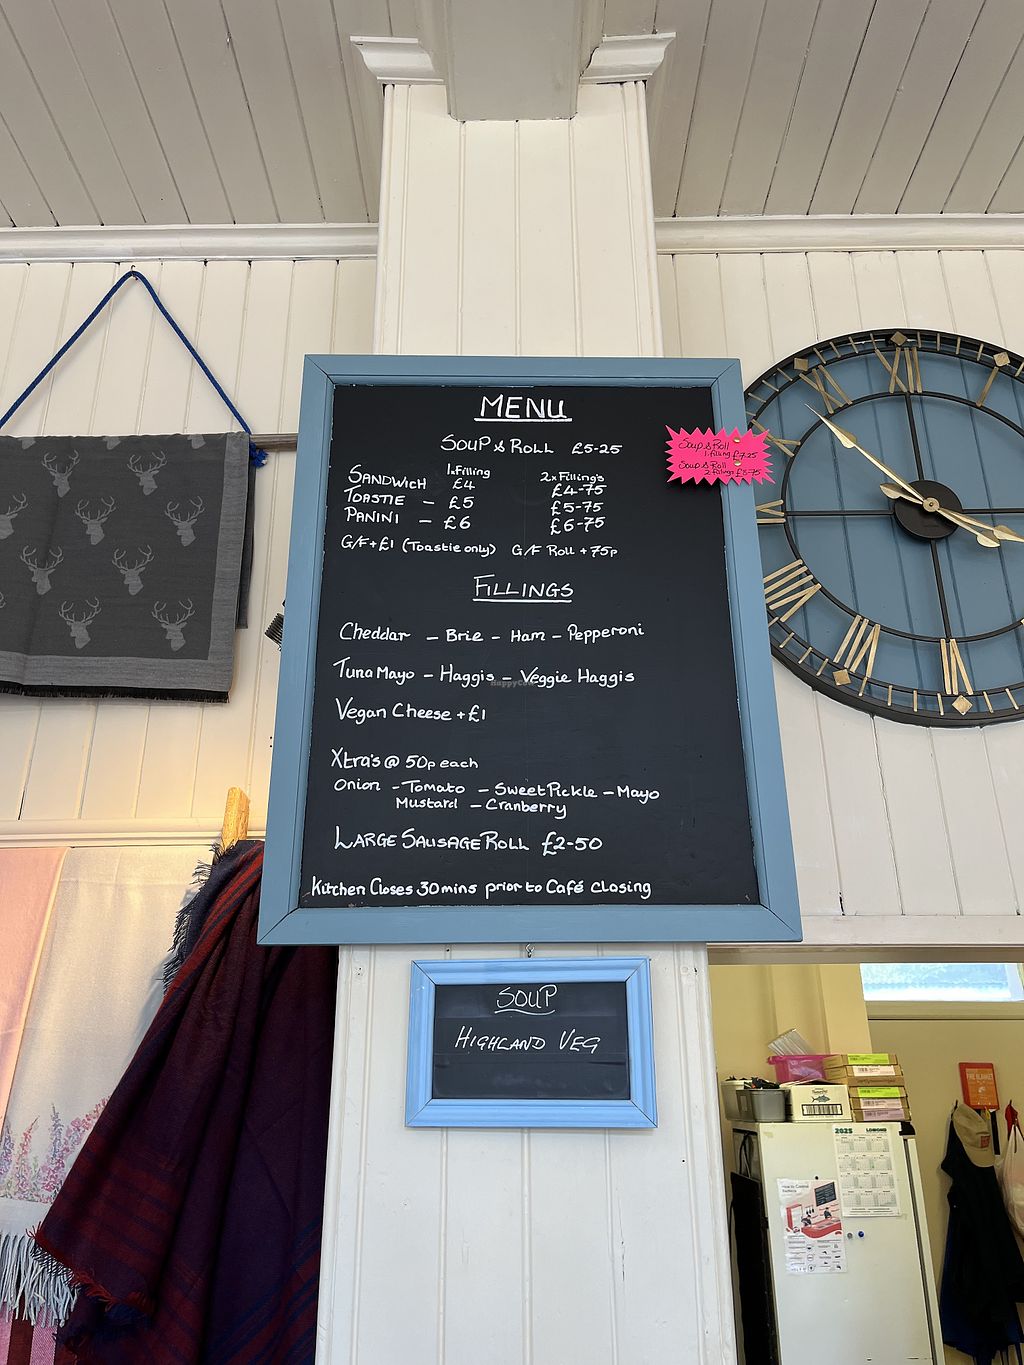 MENU
SOUP & ROLL £5-25
1xFilling 2xFilling's
SANDWICH £4 £4-75
TOASTIE - £5 £5-75
PANINI - £6 £6-75
G/F+£1 (Toastie only) G/F Roll +75p
FILLINGS
Cheddar - Brie - Ham - Pepperoni
Tuna Mayo - Haggis - Veggie Haggis
Vegan Cheese +£1
Xtra's @ 50p each
Onion - Tomato - Sweet Pickle - Mayo
Mustard - Cranberry
LARGE SAUSAGE ROLL £2-50
Kitchen Closes 30mins prior to Café closing
Soup & Roll
1.filling £7.25
Soup & Roll
2 fillings
SOUP
HIGHLAND VEG
XII
I
XI
VIII
VII
VI
2025 LOMOND
FIRE BLANKET
HappyCow